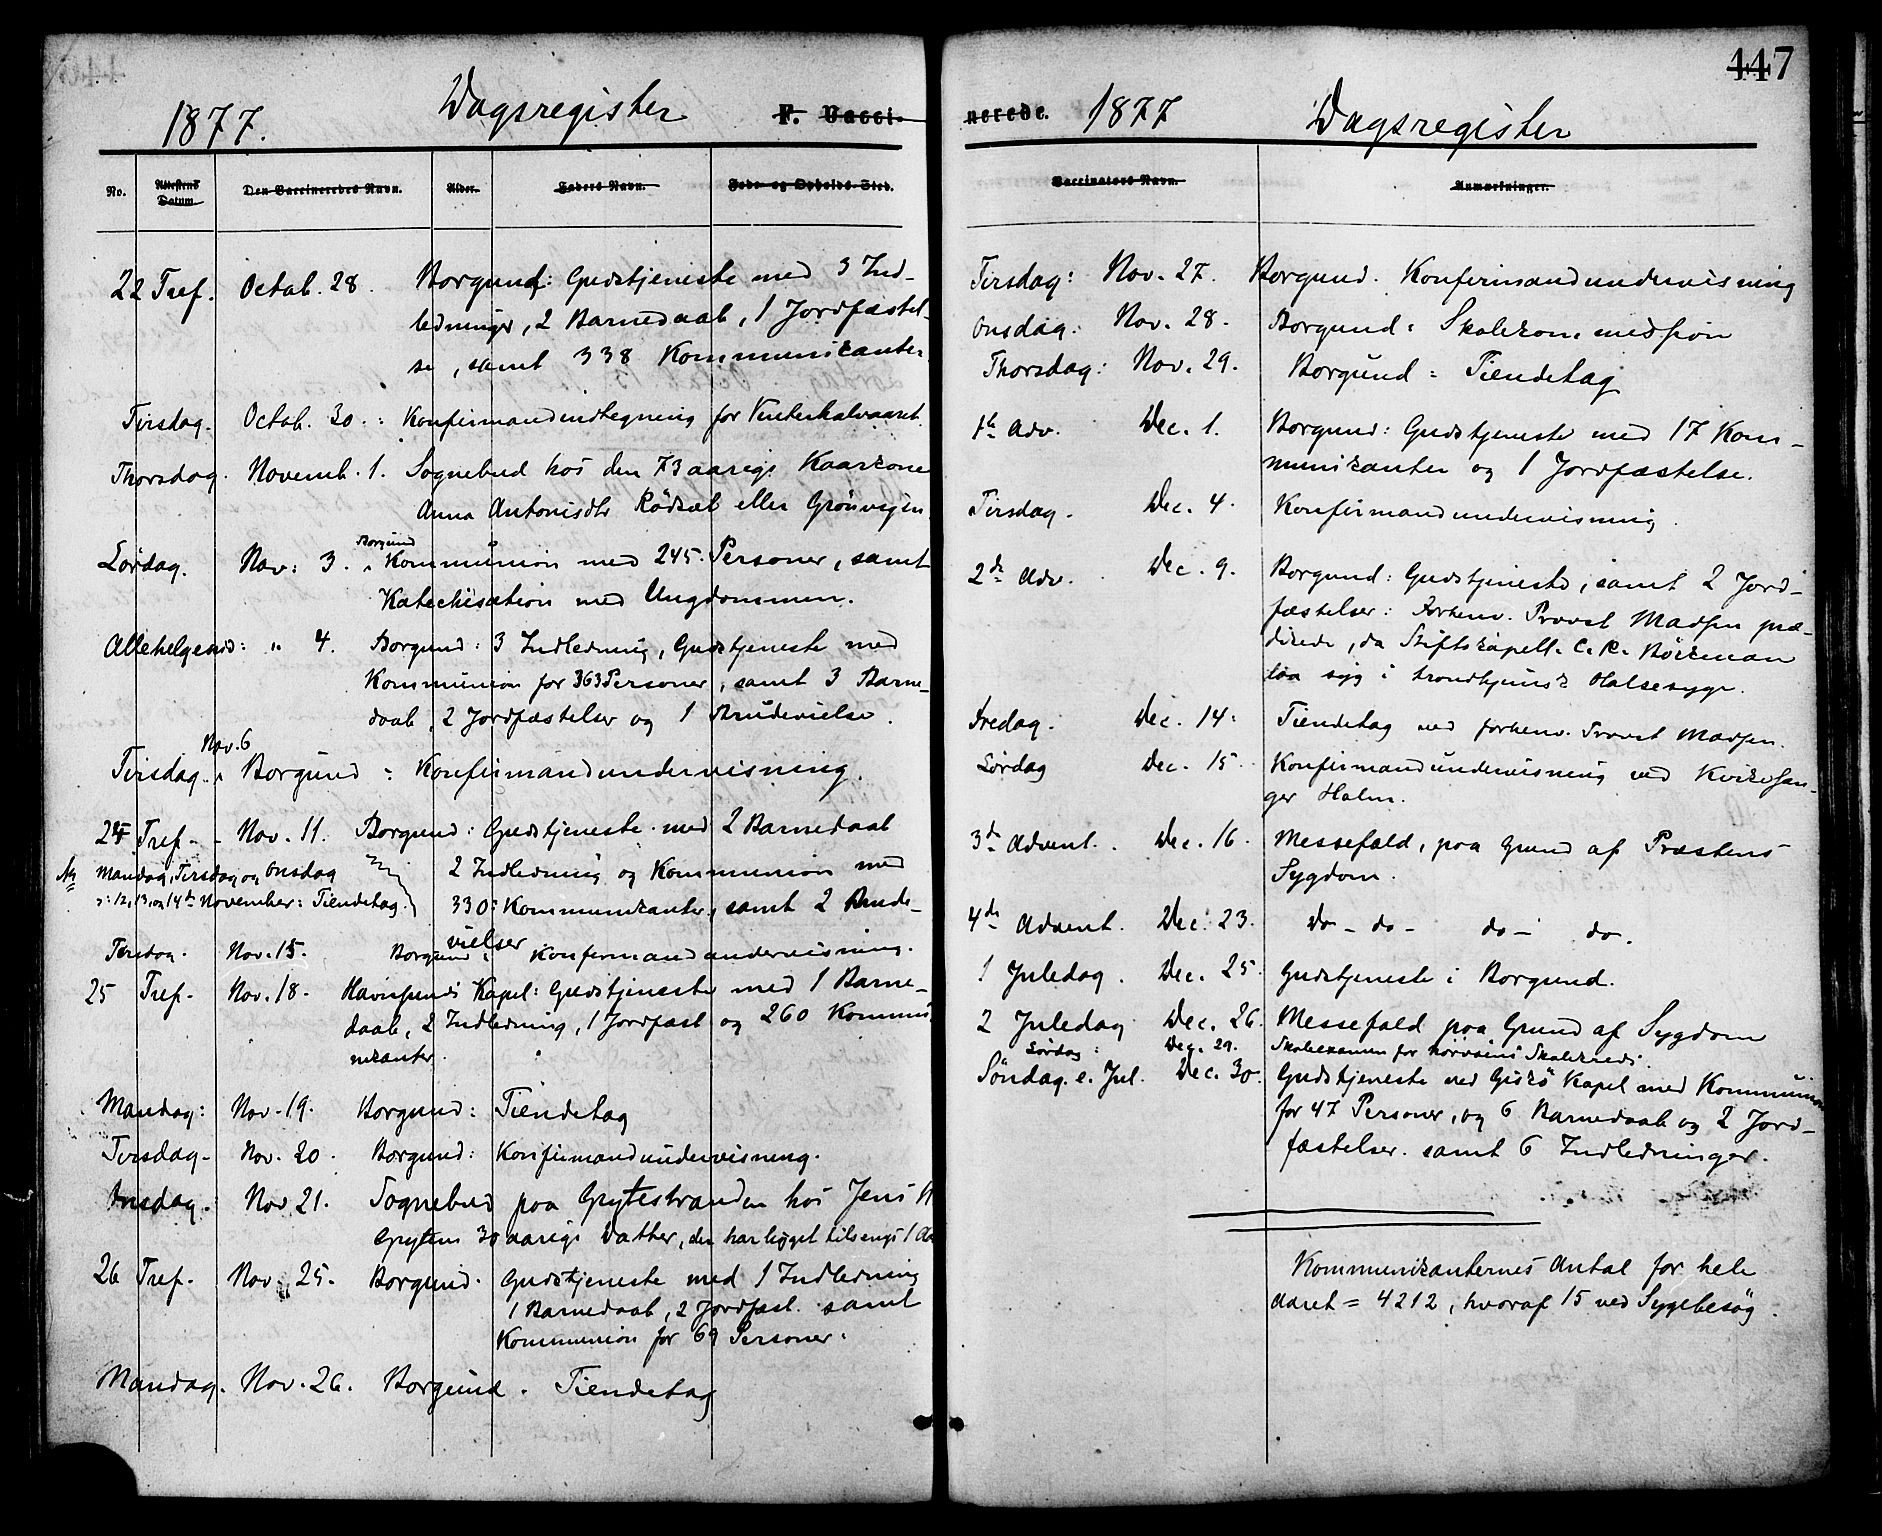 447
1877. Dagsregister F. Vacci-
No. Attestens Datum. Den Vaccineredes Navn. Alder. Faders Navn. Føde- og Opholds-Sted.
22 Tref. Octob. 28. Borgund: Gudstjeneste med 3 Ind-
ledninger, 2 Barnedaab, 1 Jordfæstel-
se, samt 338 Kommunikanter.
Tirsdag. Octob. 30. : Konfirmandindtegning for Vinterhalvaaret.
Thorsdag. Novemb. 1. Sognebud hos den 73 aarige Kaarkone
Anna Antonisdtr Rödsæt eller Grönvigen.
Lördag. Nov: 3. Borgund Kommunion med 245 Personer, samt
Katechisation med Ungdommen.
Allehelgensd: " 4. Borgund: 3 Indledning, Gudstjeneste med
Kommunion for 363 Personer, samt 3 Barne-
daab, 2 Jordfæstelser og 1 Brudevielse.
Tirsdag. Nov. 6 Borgund : Konfirmandundervisning.
24 Tref. - Nov. 11. Borgund: Gudstjeneste med 2 Barnedaab
2 Indledning og Kommunion med
330 Kommunikanter, samt 2 Brude-
vielser
Mandag, Tirsdag og Onsdag
: 12, 13, og 14de November: Tiendetag.
Nov. 15. Borgund: Konfirmandundervisning.
25 Tref. Nov. 18. Havnsunds Kapel: Gudstjeneste med 1 Barne-
daab, 2 Indledning, 1 Jordfæst og 260 Kommu-
nikanter.
Mandag: Nov. 19. Borgund: Tiendetag
Tirsdag. Nov. 20. Borgund: Konfirmandundervisning.
Onsdag. Nov 21. Sognebud paa Grytestranden hos Jens
Grytens 30 aarige Datter, der har ligget tilsengs 1 Aar
26 Tref. Nov. 25. Borgund. Gudstjeneste med 1 Indledning
1 Barnedaab, 2 Jordfæst. samt
Kommunion for 69 Personer.
Mandag. Nov. 26. Borgund. Tiendetag
nerede. 1877 Dagsregister
Vaccinators Navn. Anmærkninger.
Tirsdag: Nov. 27. Borgund. Konfirmandundervisning
Onsdag: Nov. 28. Borgund: Skolekommission
Thorsdag: Nov. 29. Borgund: Tiendetag
1ste Adv. Dec. 1. Borgund: Gudstjeneste med 17 Kom-
munikanter og 1 Jordfæstelse.
Tirsdag. Dec. 4. Konfirmandundervisning.
2den Adv. Dec. 9. Borgund: Gudstjeneste, samt 2 Jord-
fæstelser: Forhenv. Provst Madsen præ-
dikede, da Stiftskapell. C. R. Böckman
laa syg i trondhjemsk Halsesyge.
Fredag. Dec. 14. Tiendetag ved forhenv. Provst Madsen.
Lördag Dec. 15. Konfirmandundervisning ved Kirkesan-
ger Holm.
3de Advent. Dec. 16. Messefald, paa Grund af Præstens
Sygdom.
4de Advent. Dec. 23. Do - do - do - do.
1 Juledag. Dec. 25. Gudstjeneste i Borgund.
2 Juledag Dec. 26. Messefald paa Grund af Sygdom
Lördag: Dec. 29. Skoleexamen for Skolekreds.
Söndag e. Jul. Dec. 30. Gudstjeneste ved Giskö Kapel med Kommunion
for 47 Personer, og 6 Barnedaab og 2 Jord-
fæstelser. samt 6 Indledninger.
Kommunikanternes Antal for hele
Aaret = 4212, hvoraf 15 ved Sygebesög.